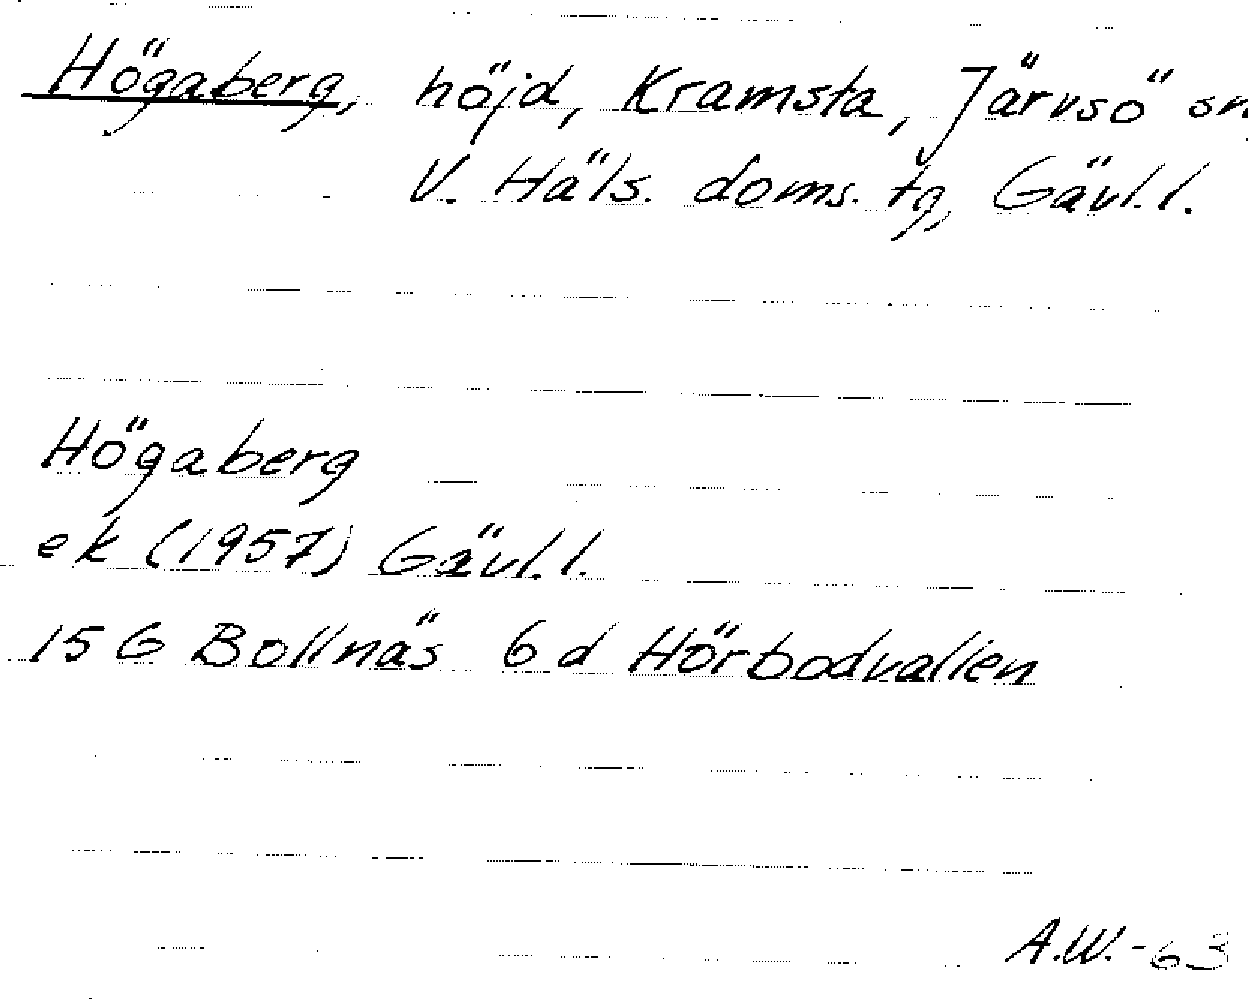 Högaberg, höjd, Kramsta, Järvsö sn,
V. Häls. doms. tg, Gävl. l.
Högaberg
ek (1957) Gävl. l.
15 G Bollnäs 6 d Hörbodvallen
A.W.-63